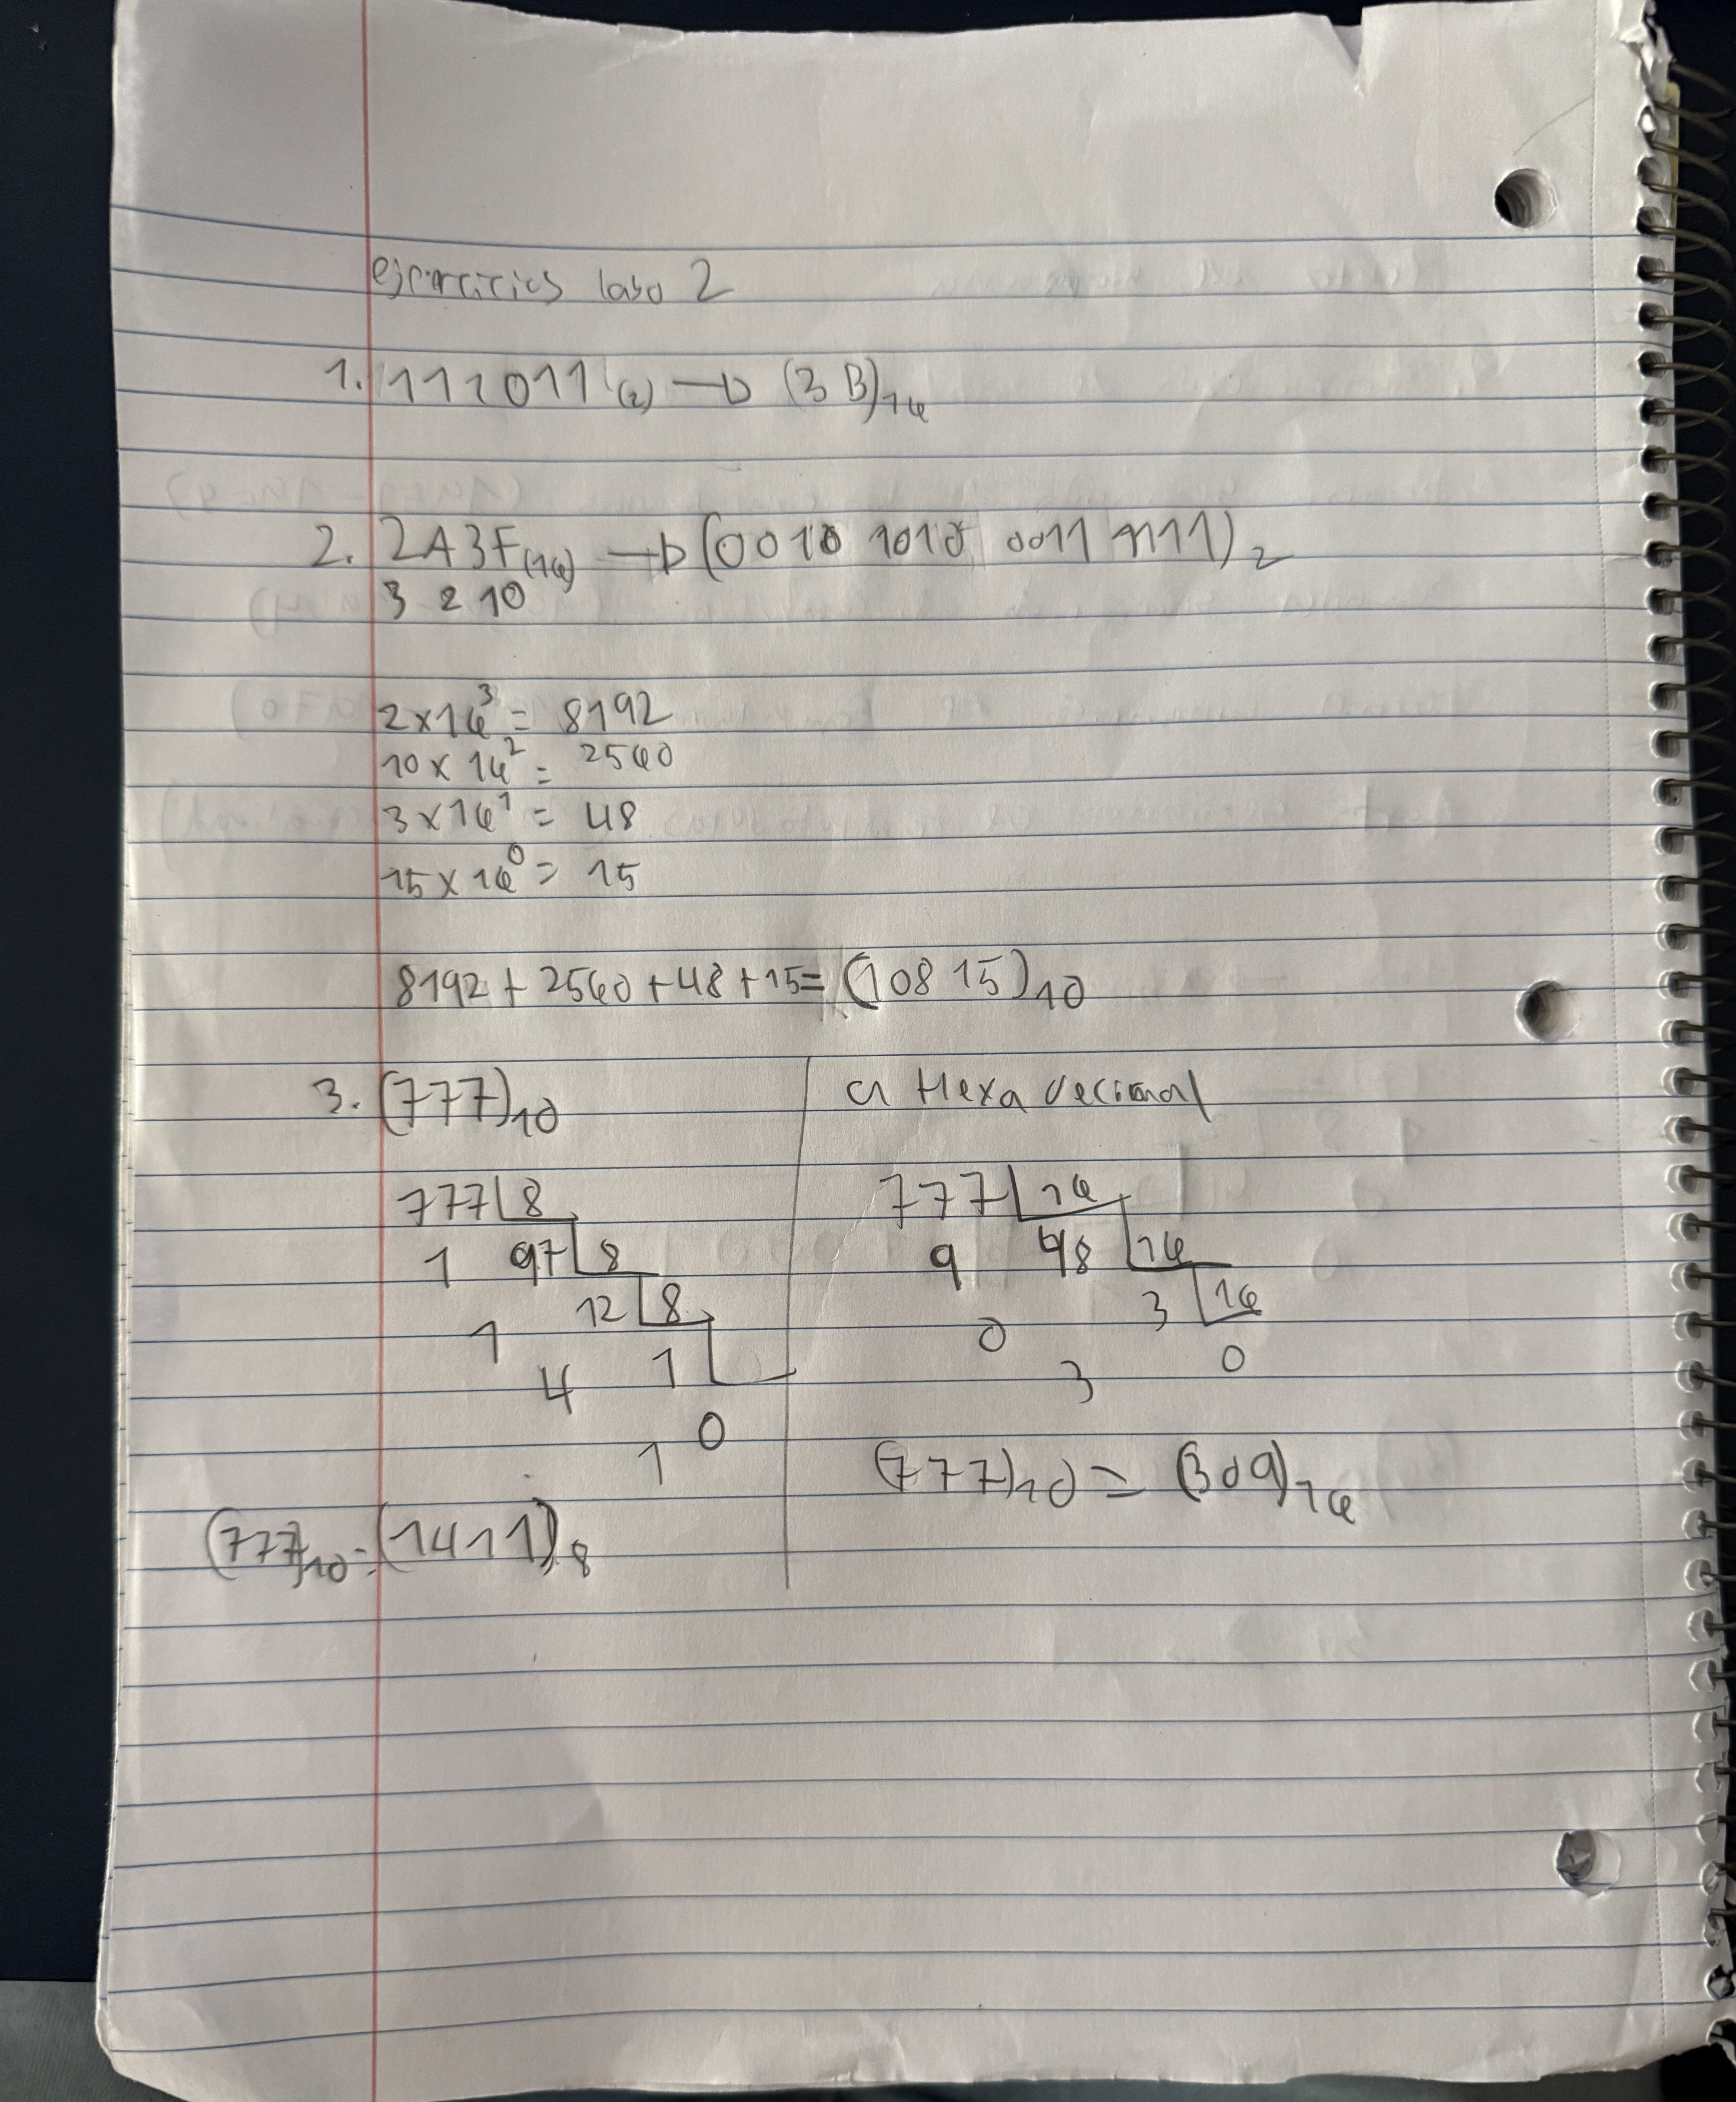 ejercicios labo 2
1. 111011(2) → (3B)16
2. 2A3F(16) → (0010 1010 0011 1111)2
3 2 10
2x16^3 = 8192
10x16^2 = 2560
3x16^1 = 48
15x16^0 = 15
8192 + 2560 + 48 + 15 = (10815)10
3. (777)10
777 8
1 97 8
1 12 8
4 1
1 0
(777)10 = (1411)8
a Hexadecimal
777 16
9 48 16
0 3 16
3 0
(777)10 = (309)16